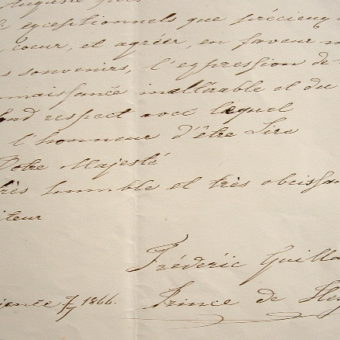 exceptionnels que précieux
coeur, et agréer, en faveur
souvenirs, l'expression de
inaltérable et du
respect avec lequel
l'honneur d'être Sire
Votre Majesté
très humble et très obéissan
iteur
Frédéric Guilla
1866. Prince de